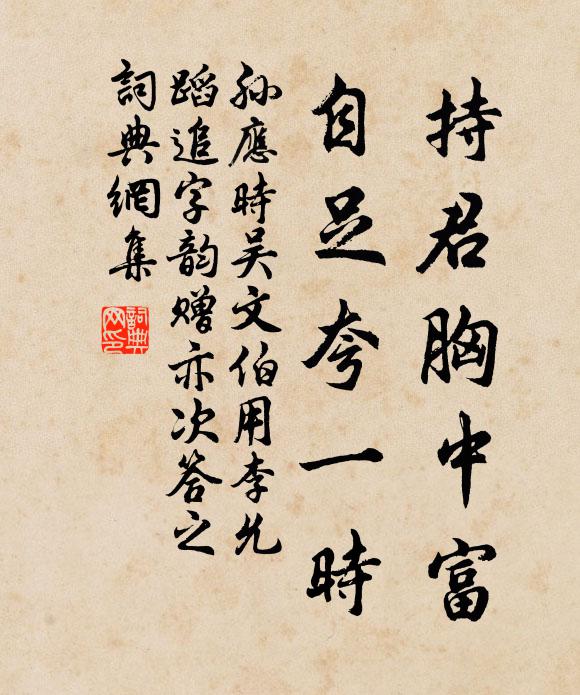 持君胸中富
自足夸一時
孫應時吴文伯用李允
蹈追字韵贈亦次答之
詞典網集
詞典網印